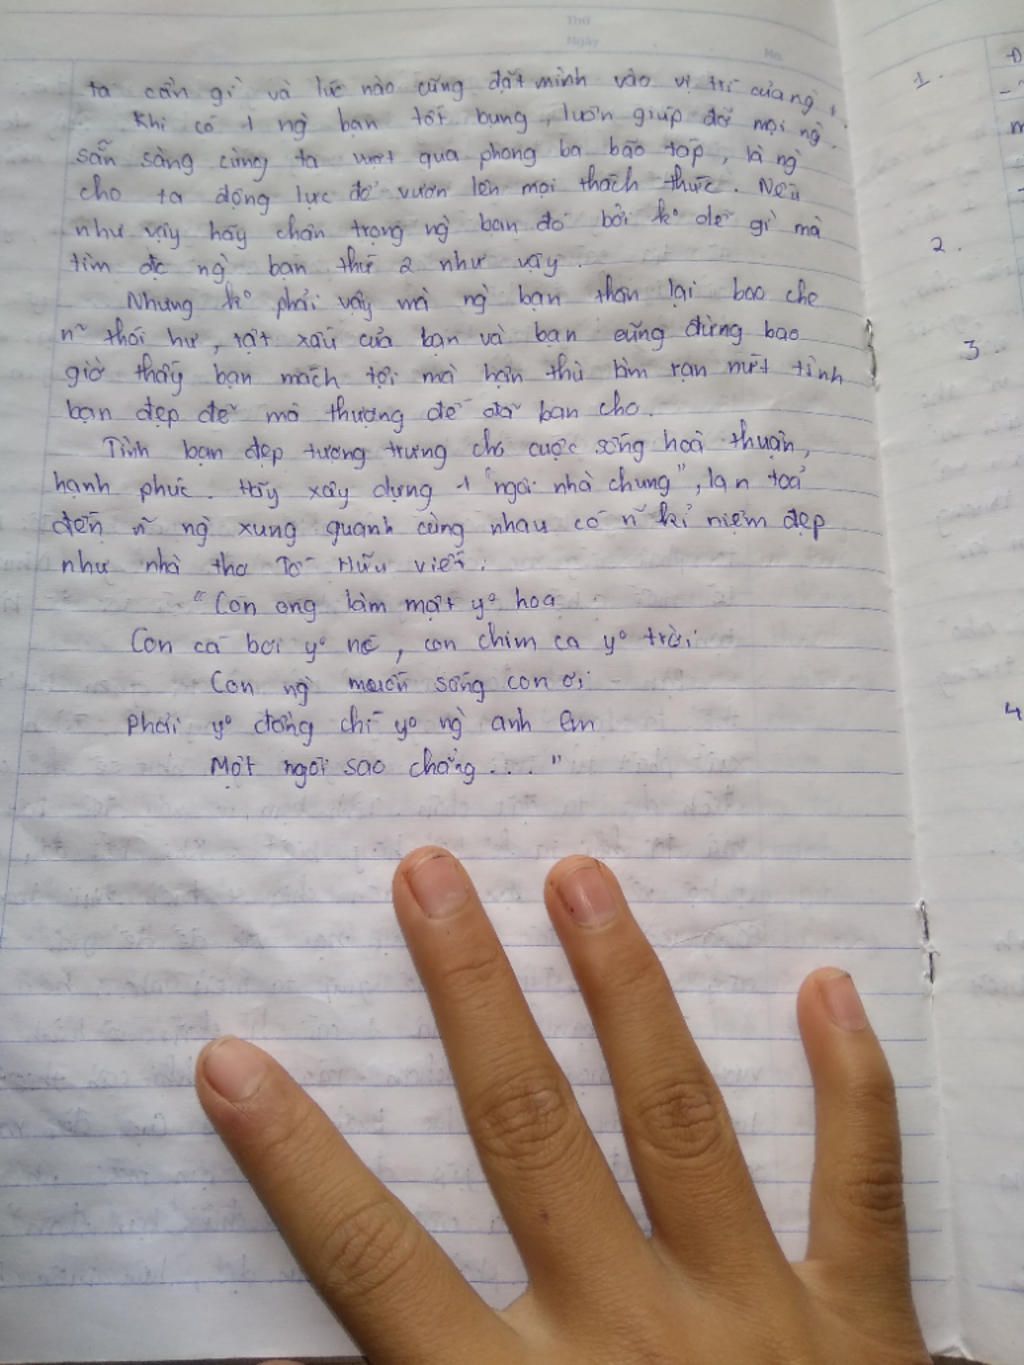 Thứ
Ngày
No.
ta cần gì và lúc nào cũng đặt mình vào vị trí của ng`,
Khi có 1 ng` bạn tốt bụng, luôn giúp đỡ mọi ng`.
sẵn sàng cùng ta vượt qua phong ba bão táp, là ng`
cho ta động lực để vươn lên mọi thách thức. Nếu
như vậy hãy chân trọng ng` bạn đó bởi k° dễ gì mà
tìm đc ng` bạn thứ 2 như vậy.
Nhưng k° phải vậy mà ng` bạn thân lại bao che
n~ thói hư, tật xấu của bạn và bạn cũng đừng bao
giờ thấy bạn mách tội mà hận thù làm rạn nứt tình
bạn đẹp đẽ mà thượng đế đã ban cho.
Tình bạn đẹp tượng trưng cho cuộc sống hoà thuận,
hạnh phúc. Hãy xây dựng 1 "ngôi nhà chung", lan toả
đến n~ ng` xung quanh cùng nhau có n~ kỉ niệm đẹp
như nhà thơ Tố Hữu viết:
"Con ong làm mật y° hoa
Con cá bơi y° nc, con chim ca y° trời
Con ng` muốn sống con ơi
Phải y° đồng chí y° ng` anh em
Một ngôi sao chẳng..."
1.
2.
3.
4